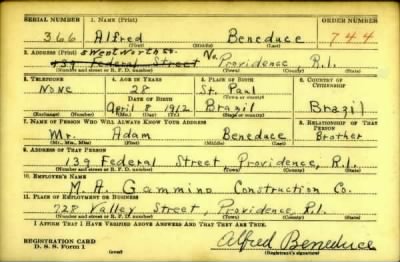 SERIAL NUMBER 1. NAME (Print) ORDER NUMBER
366 Alfred Beneduce 744
(First) (Middle) (Last)
2. ADDRESS (Print)
139 Federal Street Providence, R.I.
(Number and street or R. F. D. number) (Town) (County) (State)
3. TELEPHONE 4. AGE IN YEARS 5. PLACE OF BIRTH 6. COUNTRY OF CITIZENSHIP
None 28 St. Paul
DATE OF BIRTH
April 8 1912 Brazil Brazil
7. NAME OF PERSON WHO WILL ALWAYS KNOW YOUR ADDRESS 8. RELATIONSHIP OF THAT PERSON
Mr. Adam Beneduce Brother
(Mr., Mrs., Miss) (First) (Middle) (Last)
9. ADDRESS OF THAT PERSON
139 Federal Street Providence, R.I.
(Number and street or R. F. D. number) (Town) (County) (State)
10. EMPLOYER'S NAME
M. A. Gammino Construction Co.
11. PLACE OF EMPLOYMENT OR BUSINESS
728 Valley Street, Providence, R.I.
(Number and street or R. F. D. number) (Town) (County) (State)
I AFFIRM THAT I HAVE VERIFIED ABOVE ANSWERS AND THAT THEY ARE TRUE.
REGISTRATION CARD
D. S. S. Form 1
Alfred Beneduce
(Registrant's signature)